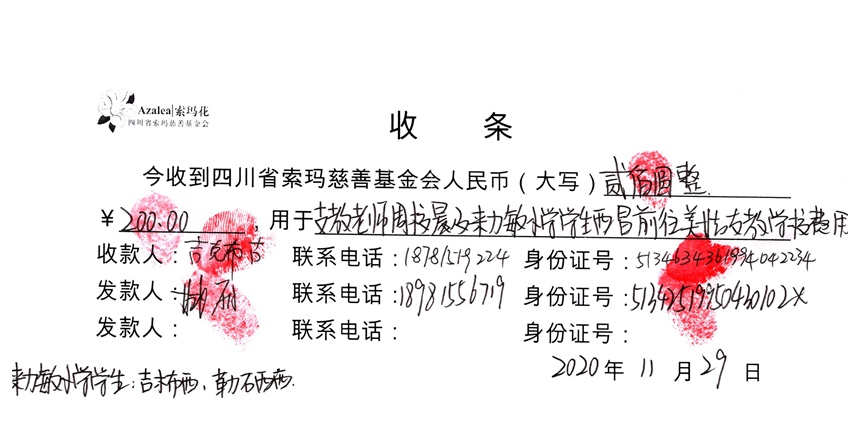 Azalea|索玛花
四川省索玛慈善基金会
收 条
今收到四川省索玛慈善基金会人民币（大写）贰佰圆整
￥200.00，用于支教老师周 及 敏小学学生西昌前往美姑 教学 费用
收款人：吉克布 联系电话：18781519224 身份证号：
发款人： 联系电话：18981556719 身份证号：51343519950430102X
发款人： 联系电话： 身份证号：
2020年11月29日
敏小学学生：吉 布西、勒石